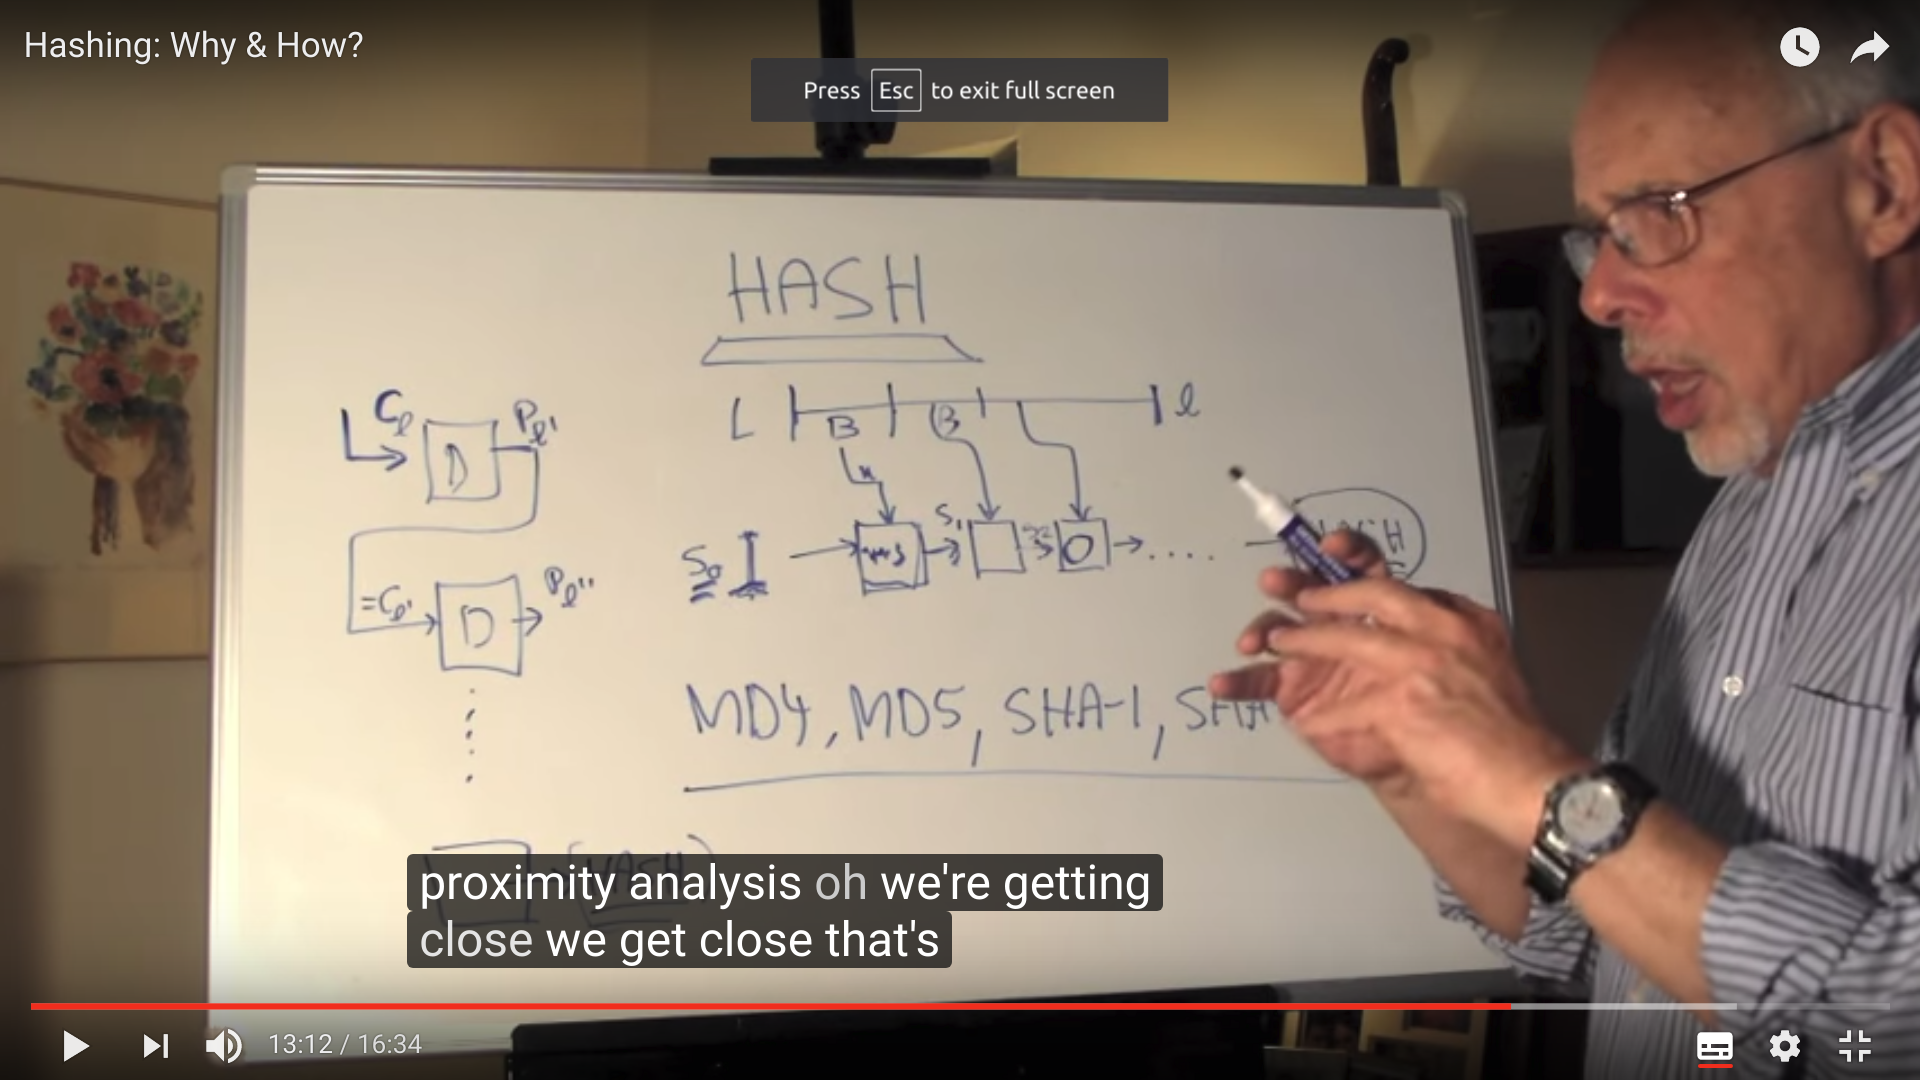 Hashing: Why & How?
Press Esc to exit full screen
HASH
L B B l
C_l D P_l'
S_0 I S_1
=C_l' D P_l''
MD4, MD5, SHA-1,
proximity analysis oh we're getting
close we get close that's
13:12 / 16:34